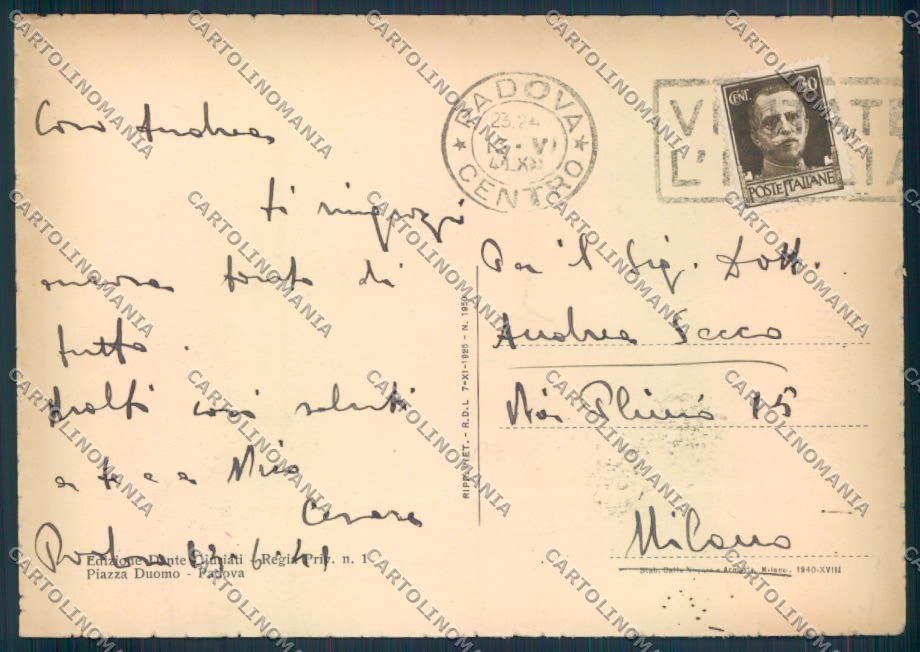 Caro Andrea
ti ringrazi
ancora tanto di
tutto.
Molti cari saluti
a te e a Mira
Cesare
Padova 12-6-41
Edizione Dante Gimiati - Regia Priv. n. 1
Piazza Duomo - Padova
RIPR. VIET. - R.D.L. 7-XI-1925 - N. 1950
PADOVA
23.24
13·VI
41.XIX
CENTRO
VISITATE
L'ITALIA
CENT. 30
POSTE ITALIANE
Per il Sig. Dott.
Andrea Secco
Via Plinio 15
Milano
Stab. Dalla Nogare e Armetti, Milano, 1940-XVIII
CARTOLINOMANIA